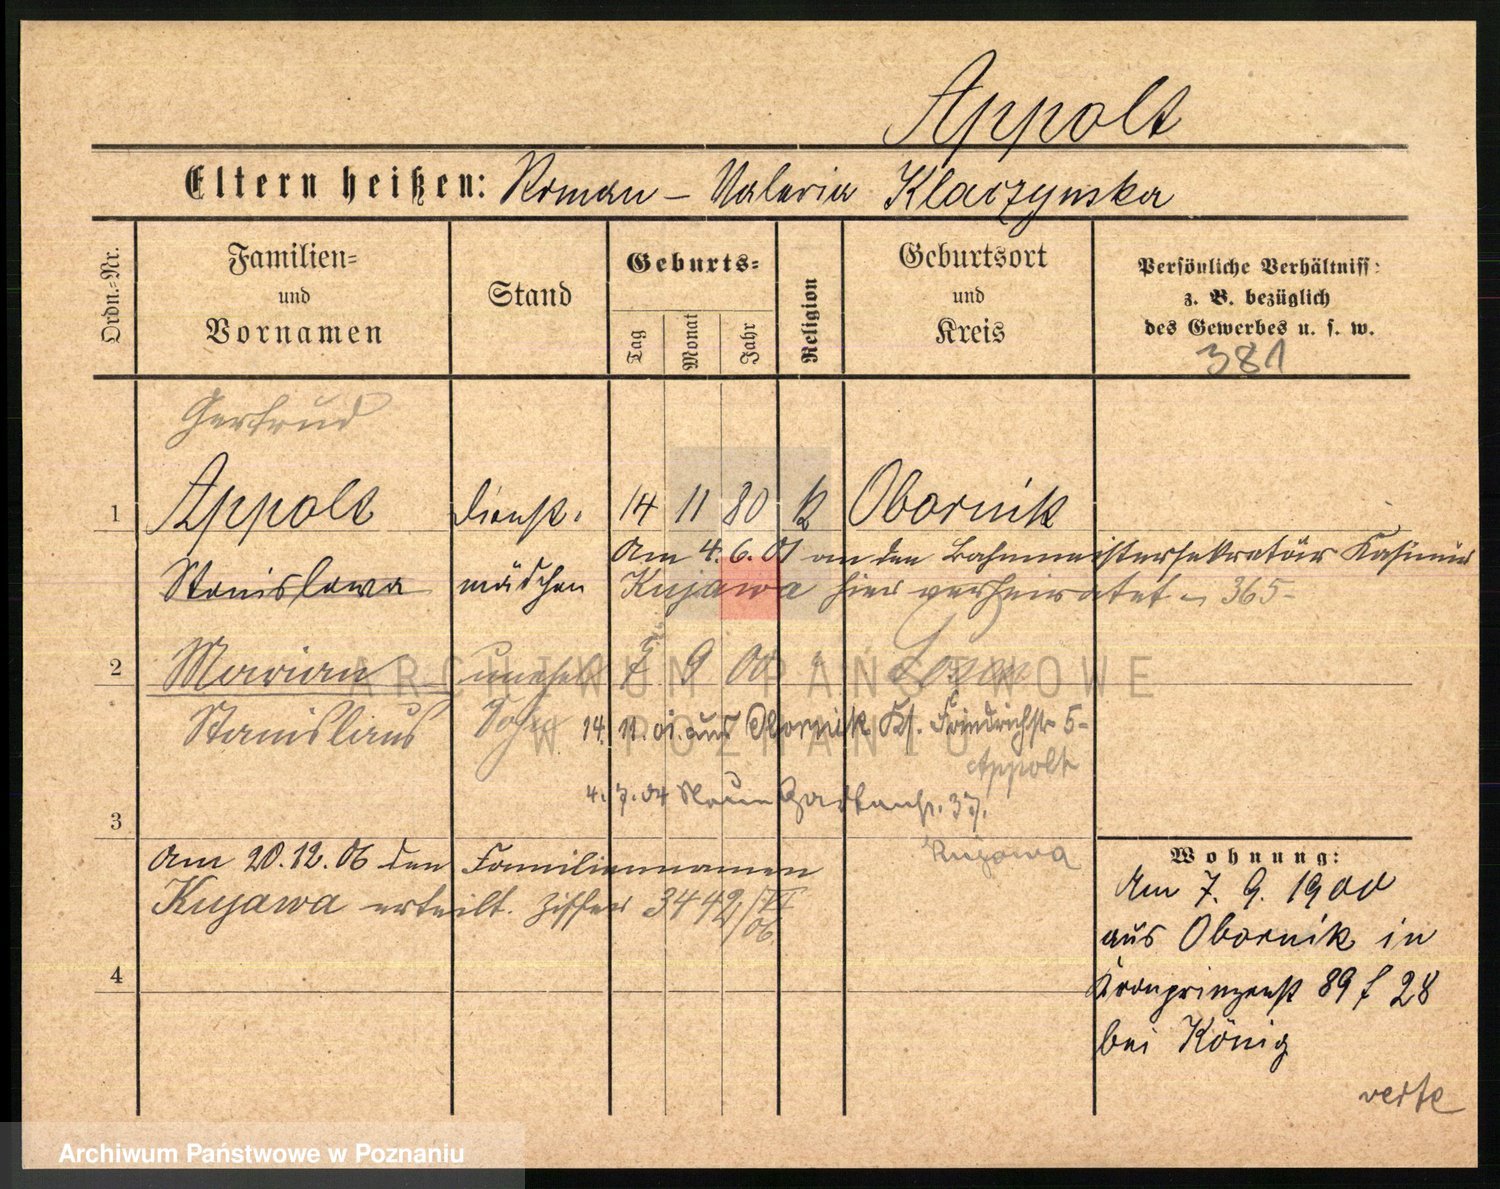 Appolt
Eltern heißen: Roman – Valeria Klaczynska
Ordn.-Nr.
Familien- und Vornamen
Stand
Geburts-
Tag
Monat
Jahr
Religion
Geburtsort und Kreis
Persönliche Verhältniss:
z. B. bezüglich
des Gewerbes u. s. w.
381
Gertrud
1 Appolt Dienst- 14 11 80 k Obornik
Am 4.6.01 an den Bahnmeistersekretär Kasimir
Stanislawa mädchen Kujawa hier verheiratet 365-
2 Marian unehel 7 9 00
Stanislaus Sohn 14. 11. 01. aus Obornik Friedrichstr 5-
Appolt
4. 7. 04 37.
3
Kujawa
Am 20.12.06 den Familiennamen
Kujawa erteilt. Ziffer 3442/VI 06.
4
Wohnung:
Am 7. 9. 1900
aus Obornik in
Kronprinzenst 89 f 28
bei König
verte
ARCHIWUM PAŃSTWOWE
W POZNANIU
Archiwum Państwowe w Poznaniu